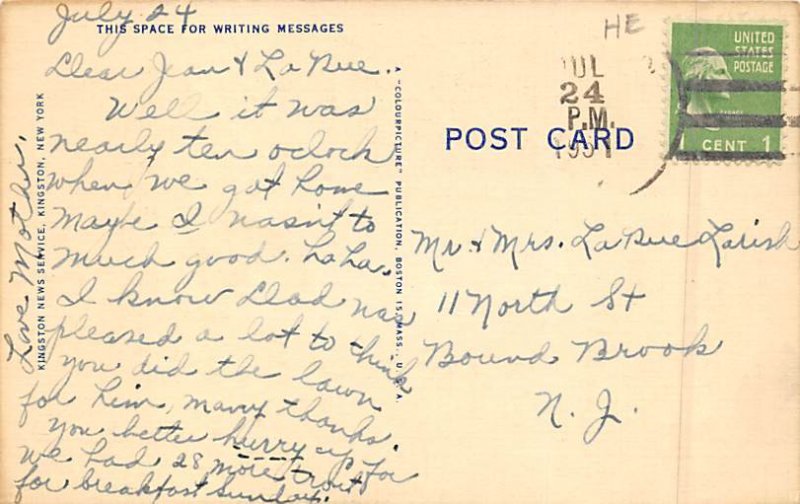 July 24
THIS SPACE FOR WRITING MESSAGES
Dear Jean & La Rue.
Well it was
nearly ten oclock
when we got home
Maybe I wasn't to
much good. ha ha.
I know Dad was
pleased a lot to think
you did the lawn
for him, many thanks.
you better hurry up for
we had 28 more trout
for breakfast Sunday.
Love Mother.
KINGSTON NEWS SERVICE, KINGSTON, NEW YORK
A "COLOURPICTURE" PUBLICATION, BOSTON 15, MASS., U.S.A.
HE
JUL
24
P.M.
1951
UNITED
STATES
POSTAGE
1 CENT 1
POST CARD
Mr & Mrs. LaRue Larish
11 North St
Bound Brook
N. J.